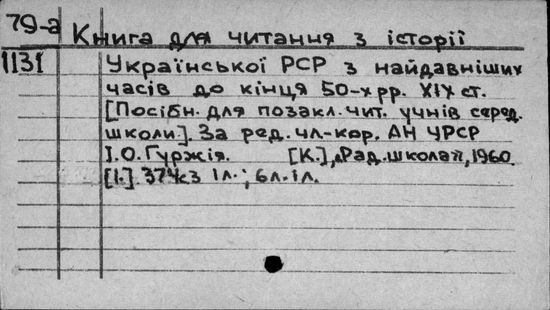 79-а
Книга для читання з історії
1131
Української РСР з найдавніших
часів до кінця 50-х рр. XIX ст.
[Посібн. для позакл. чит. учнів серед.
школи.]. За ред. чл-кор. АН УРСР
І.О. Гуржія. [К.], „Рад. школа", 1960.
[1.] 374 с з іл.; 6л. іл.